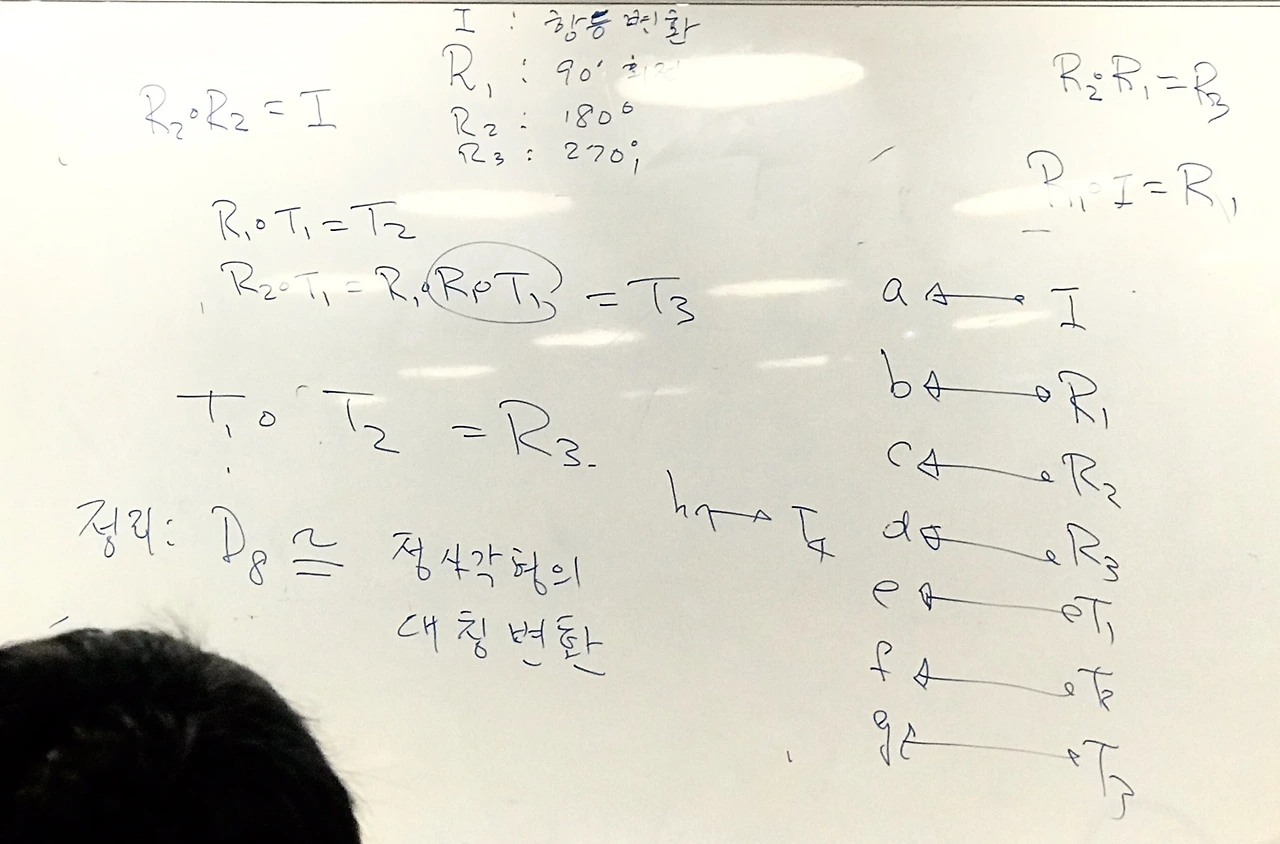 I : 항등변환
R₁ : 90°
R₂ : 180°
R₃ : 270°,
R₂∘R₂ = I
R₂∘R₁ = R₃
R₁∘I = R₁
R₁∘T₁ = T₂
R₂∘T₁ = R₁∘R₁∘T₁ = T₃
T₁∘T₂ = R₃.
정리: D₈ ≅ 정사각형의
대칭변환
a ↔ I
b ↔ R₁
c ↔ R₂
d ↔ R₃
e ↔ T₁
f ↔ T₂
g ↔ T₃
h ↔ T₄